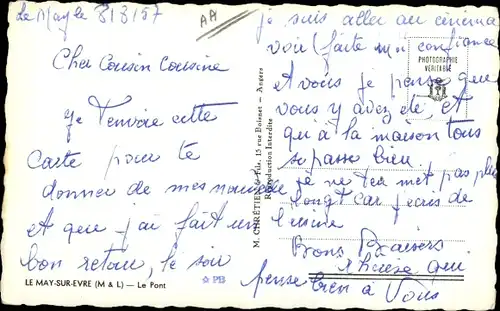 Le May le 8/8/57
AA
Cher Cousin Cousine
Je t'envoie cette
Carte pour te
donner de mes nouvelle
et que j'ai fait un
bon retour, le soir
LE MAY-SUR-EVRE (M & L) — Le Pont
☆PB
M. CHRÉTIEN 15 rue Boisnet — Angers
Reproduction Interdite
PHOTOGRAPHIE
VÉRITABLE
je suis aller au cinéma
voir (faite moi confiance
et à vous je pense que
vous y avez été et
qu'à la maison tous
se passe bien.
je ne t'en met pas plus
long car j'écris de
l'usine
Bons Baisers
qui
pense bien à Vous